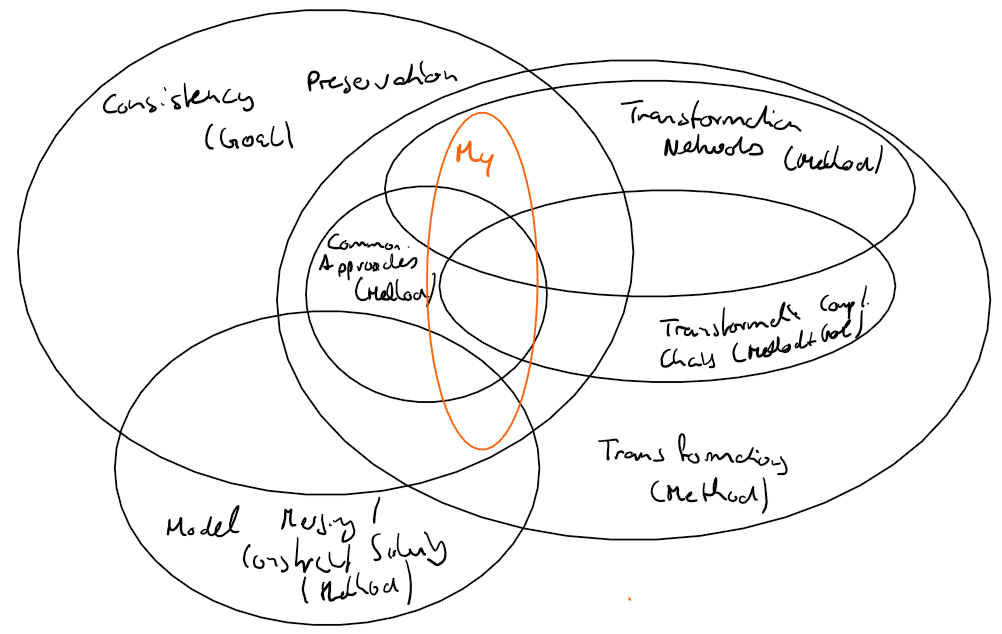 Consistency Preservation
(Goal)
Transformation
Networks (Method)
My
Common
Approaches
(Method)
Transformati Compl.
Chains (Method+Goal)
Transformations
(Method)
Model Merging /
Constraint Solving
(Method)